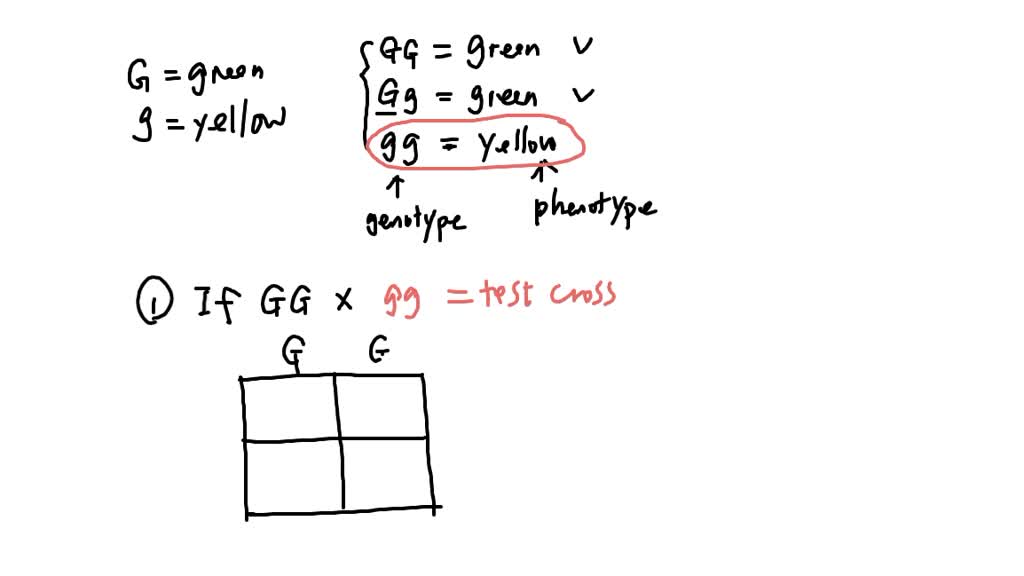 G = green
g = yellow
GG = green v
Gg = green v
gg = yellow
↑ ↑
genotype phenotype
① If GG × gg = test cross
G G